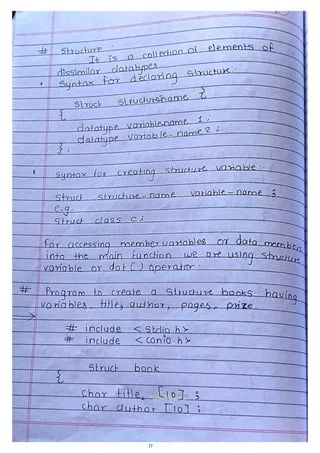 # Structure
It is a collection of elements of
dissimilar datatypes
• Syntax for declaring structure:
Struct structurename {
{
datatype variablename 1;
datatype variable-name 2;
};
Syntax for creating structure variable:
struct structure-name variable-name ;
e.g.
struct class c;
For accessing member variables or data members
into the main function we are using structure
variable or dot (.) operator.
# Program to create a structure books having
variables, title, author, pages, prize.
→
# include <Stdio.h>
# include <conio.h>
struct book
{
char title [10] ;
char author [10] ;
17